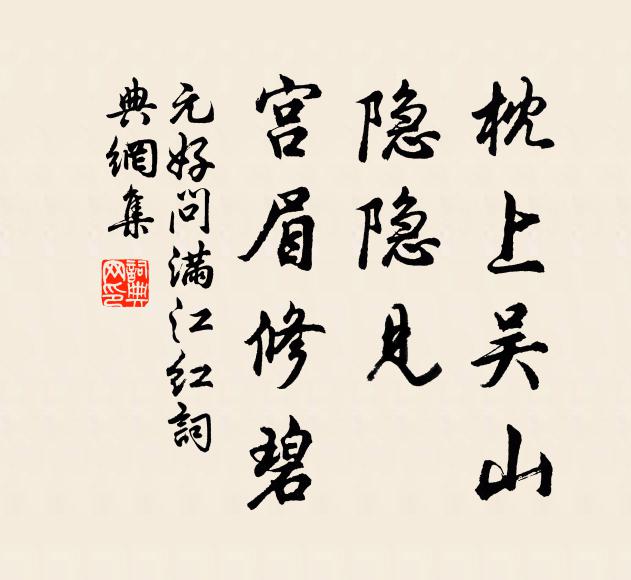 枕上吴山
隐隐见
宫眉修碧
元好问满江红詞
典網集
詞典網印